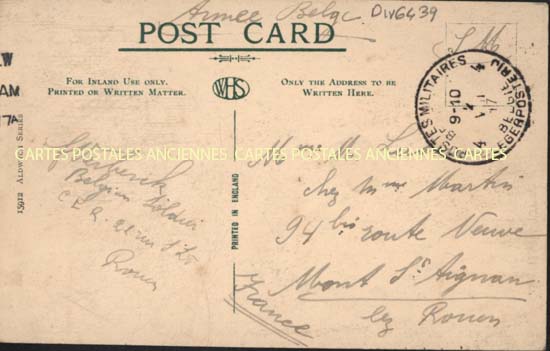 Armée Belge
DIV6439
POST CARD
S.M
FOR INLAND USE ONLY.
PRINTED OR WRITTEN MATTER.
WHS
ONLY THE ADDRESS TO BE
WRITTEN HERE.
POSTES MILITAIRES
9-10
LEGERPOSTERIJ
CARTES POSTALES ANCIENNES
CARTES POSTALES ANCIENNES
CARTES POSTALES ANCIENNES
15912 ALDWYCH SERIES
PRINTED IN ENGLAND
Belgian Soldier
Rouen
chez Mme Martin
94 bis route Neuve
Mont St Aignan
lez Rouen
France